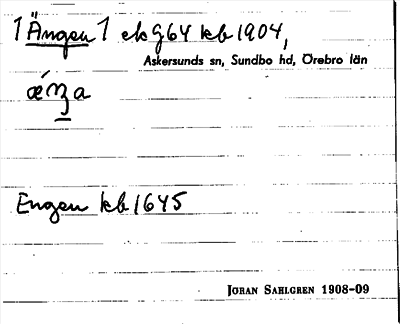 1 Ängen 1 ekg64 kb1904,
Askersunds sn, Sundbo hd, Örebro län
Engen kb 1645
JÖRAN SAHLGREN 1908-09